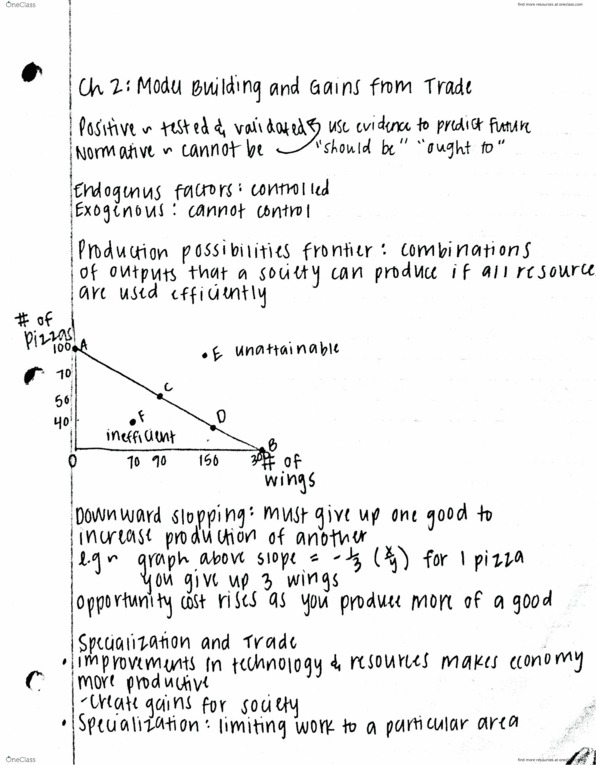 OneClass
find more resources at oneclass.com
Ch 2: Model Building and Gains from Trade
Positive ~ tested & validated use evidence to predict future
Normative ~ cannot be "should be" "ought to"
Endogenus factors: controlled
Exogenous: cannot control
Production possibilities frontier: combinations
of outputs that a society can produce if all resource
are used efficiently
# of
pizzas
100 A
E unattainable
70
C
50
D
40
F
inefficient
B
0 70 90 150 300
# of
wings
Downward slopping: must give up one good to
increase production of another
e.g ~ graph above slope = -1/3 (x/y) for 1 pizza
you give up 3 wings
opportunity cost rises as you produce more of a good
Specialization and Trade
• improvements in technology & resources makes economy
more productive
-create gains for society
• Specialization: limiting work to a particular area
OneClass
find more resources at oneclass.com